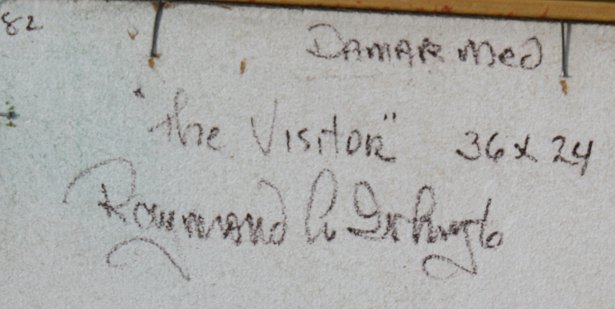 82
DAMAR Med
"The Visitor" 36 x 24
Raymond A